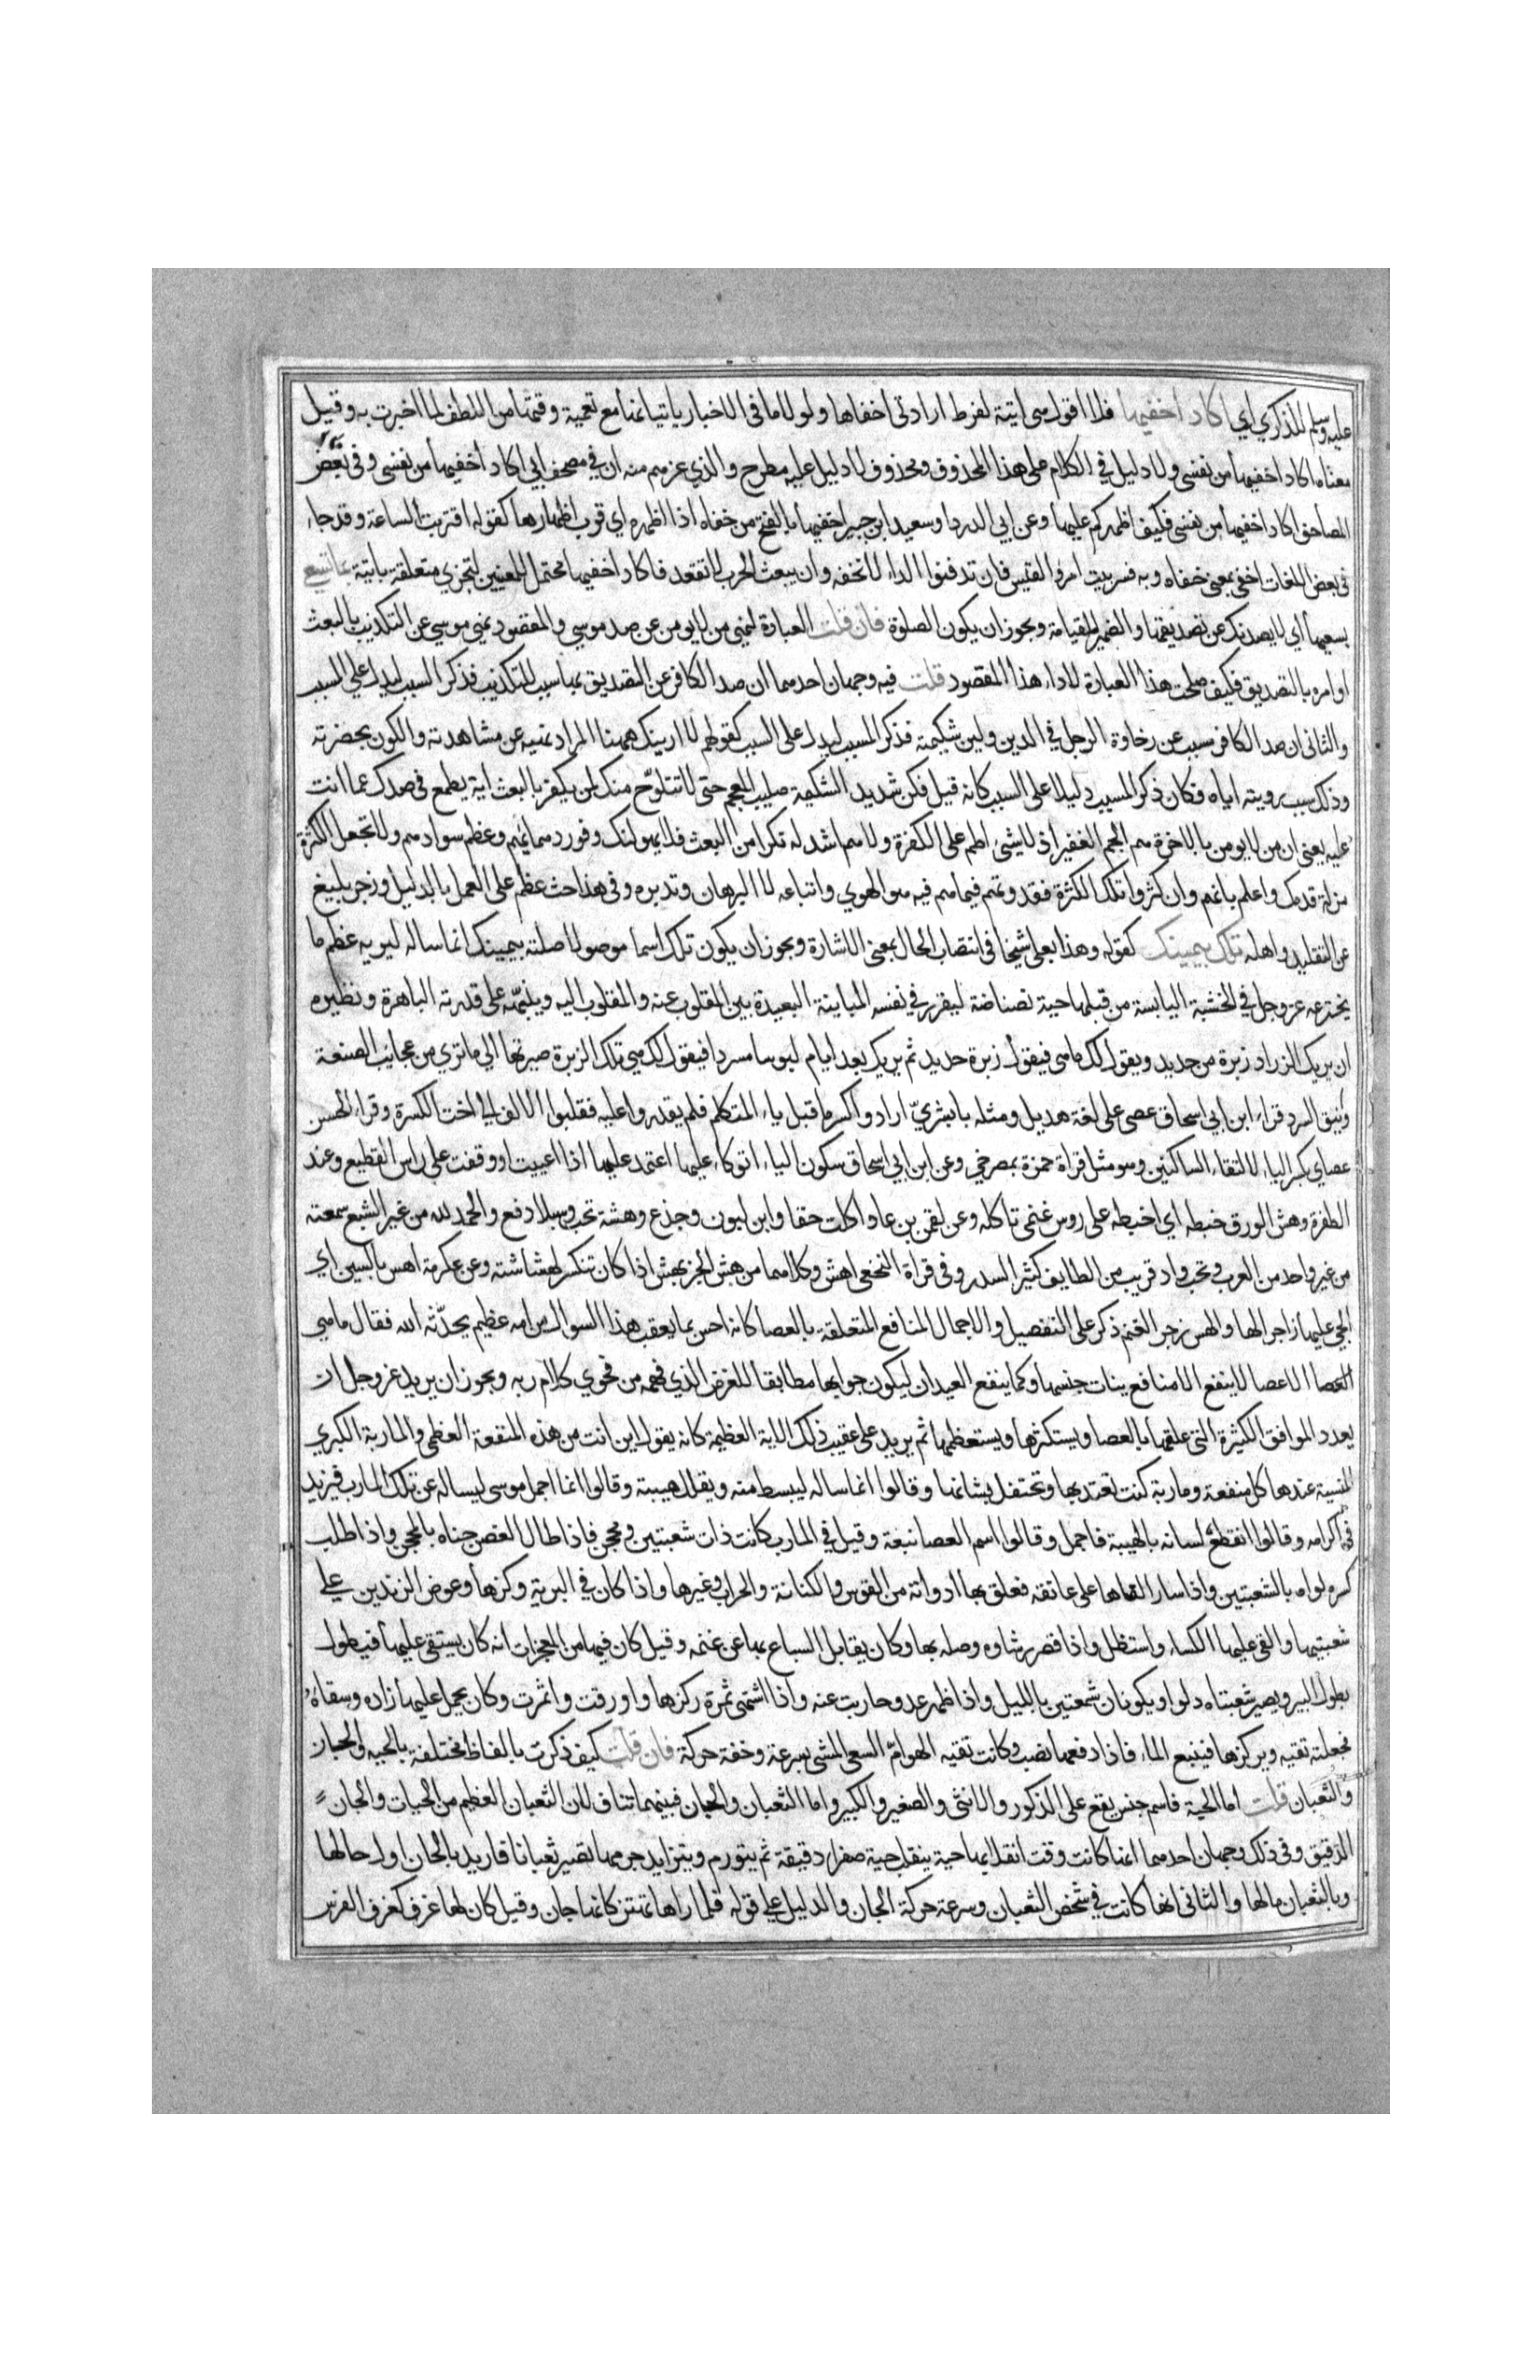 عليه وسلم للذكري اي اكاد اخفيها فلا اقول هي اتية لفرط ارادتي اخفاها ولولا ما في الاخبار باتيانها مع تعمية وقتها من اللطف لما اخبرت به وقيل
معناه اكاد اخفيها من نفسي ولا دليل في الكلام على هذا المحذوف ومحذوف لا دليل عليه مطرح والذي غرهم منه ان في مصحف ابي اكاد اخفيها من نفسي وفي بعض
المصاحف اكاد اخفيها من نفسي فكيف اظهركم عليها وعن ابي الدردا وسعيد ابن جبير اخفيها بالفتح من خفاه اذا اظهره اي قرب اظهارها كقوله اقتربت الساعة وقد جاء
في بعض اللغات اخفى بمعنى خفاه وبه فسر بيت امرؤ القيس فان تدفنوا الداء لا نخفه وان يبعث الحرب لا نقعد فاكاد اخفيها محتمل للمعنيين لتجزي متعلقة باتية بما تسعى
بسعيها اي لا يصدنك عن تصديقها والضمير للقيامة ويجوز ان يكون للصلوة فان قلت العبارة لنهي من لا يومن عن صد موسى والمقصود نهي موسى عن التكذيب بالبعث
او امره بالتصديق فكيف صلحت هذا العبارة لاداء هذا المقصود قلت فيه وجهان احدهما ان صد الكافر عن التصديق بها سبب للتكذيب فذكر السبب ليدل على المسبب
والثاني ان صد الكافر مسبب عن رخاوة الرجل في الدين ولين شكيمته فذكر المسبب ليدل على السبب كقولهم لا ارينك ههنا المراد نهيه عن مشاهدته والكون بحضرته
وذلك سبب رويته اياه فكان ذكر المسبب دليلا على السبب كانه قيل فكن شديد الشكيمة صليب المعجم حتى لا تتلوح منك لمن يكفر بالبعث انه يطمع في صدك عما انت
عليه يعني ان من لا يومن بالاخرة هم الجم الغفير اذ لا شيء اطم على الكفرة ولا هم اشد له نكرا من البعث فلا يهولنك وفور دهمائهم وعظم سوادهم ولا تجعل الكثرة
مزلة قدمك واعلم بانهم وان كثروا تلك الكثرة فقدوتهم فيما هم فيه هو الهوي واتباعه لا البرهان وتدبره وفي هذا حث عظيم على العمل بالدليل وزجر بليغ
عن التقليد واهله تلك بيمينك كقوله وهذا بعلي شيخا في انتصاب الحال بمعنى الاشارة ويجوز ان يكون تلك اسما موصولا صلته بيمينك انما ساله ليريه عظم ما
يخترعه عز وجل في الخشبة اليابسة من قبلها حية نضناضة ليقرر في نفسه المباينة البعيدة بين المقلوب عنه والمقلوب اليه وينبهه على قدرته الباهرة ونظيره
ان يريك الزراد زبرة من حديد ويقول لك ما هي فيقول زبرة حديد ثم يريك بعد ايام لبوسا مسردا فيقول لك هي تلك الزبرة صيرتها الى ما تري من عجايب الصنعة
وانيق السرد قراء ابن ابي اسحاق عصي على لغة هذيل ومثله يا بشري ارادوا كسر ما قبل ياء المتكلم فلم يقدروا عليه فقلبوا الالف الي اخت الكسرة وقراء الحسن
عصاي بكسر الياء لالتقاء الساكنين وهو مثل قراة حمزة بمصرخي وعن ابن ابي اسحاق سكون الياء اتوكاء عليها اعتمد عليها اذا اعييت او وقفت على راس القطيع وعند
الطفرة وهش الورق خبطه اي اخبطه على روس غنمي تاكله وعن لقمن بن عاد اكلت حقا وابن لبون وجذع وهشة نخب وسيلا دفع والحمد لله من غير الشبع سمعته
من غير واحد من العرب ونخب واد قريب من الطايف كثير السدر وفي قراة النخعي اهش وكلاهما من هش الخبز يهش اذا كان تنكسر لهشاشته وعن عكرمة اهس بالسين اي
انحي عليها زاجرا لها والهس زجر الغنم ذكر على التفصيل والاجمال المنافع المتعلقة بالعصا كانه احس بما يعقب هذا السوال من امر عظيم يحدثه الله فقال ما هي
العصا الا عصا لا ينفع الا منافع بنات جنسها وكما ينفع العيدان ليكون جوابها مطابقا للغرض الذي فهمه من فحوي كلام ربه ويجوز ان يريد عز وجل ان
يعدد الموافق الكثيرة التي علقها بالعصا ويستكثرها ويستعظمها ثم يريد على عقيب ذلك الاية العظيمة كانه يقول اين انت من هذه المنفعة العظمي والماربة الكبري
المنسية عندها كل منفعة وماربة كنت تعتد بها وتحتفل بشانها وقالوا انما ساله ليبسط منه ويقلل هيبته وقالوا انما اجمل موسى ليساله عن تلك المارب فيزيد
في اكرامه وقالوا انقطع لسانه بالهيبة فاجمل وقالوا اسم العصا نبعة وقيل في المارب كانت ذات شعبتين ومحجن فاذا طال الغصن حناه بالمحجن واذا طلب
كسره لواه بالشعبتين واذا سار القاها على عاتقه فعلق بها ادواته من القوس والكنانة والحراب وغيرها واذا كان في البرية ركزها وعوض الزندين علي
شعبتيها والقي عليها الكساء واستظل واذا قصر رشاوه وصله بها وكان يقابل السباع بها عن غنمه وقيل كان فيها من المعجزات انه كان يستقي عليها فيطول
بطول البير ويصير شعبتاه دلوا ويكونان شمعتين بالليل واذا ظهر عدو حاربت عنه واذا اشتهى ثمرة ركزها واورقت واثمرت وكان يحمل عليها زاده وسقاه
فجعلته تقيه ويركزها فينبع الماء فاذا دفعها نضب وكانت تقيه الهوام السعي المشي بسرعة وخفة حركة فان قلت كيف ذكرت بالفاظ مختلفة بالحية والجان
والثعبان قلت اما الحية فاسم جنس يقع على الذكور والانثي والصغير والكبير واما الثعبان والجان فبينهما تناف لان الثعبان العظيم من الحيات والجان
الدقيق وفي ذلك وجهان احدهما انها كانت وقت انقلابها حية ينقلب حية صفرا دقيقة ثم يتورم ويتزايد جرمها تصير ثعبانا فاريد بالجان اول حالها
وبالثعبان مالها والثاني انها كانت في شخص الثعبان وسرعة حركة الجان والدليل علي قوله فلما راها تهتز كانها جان وقيل كان لها عرف كعرف الفرس